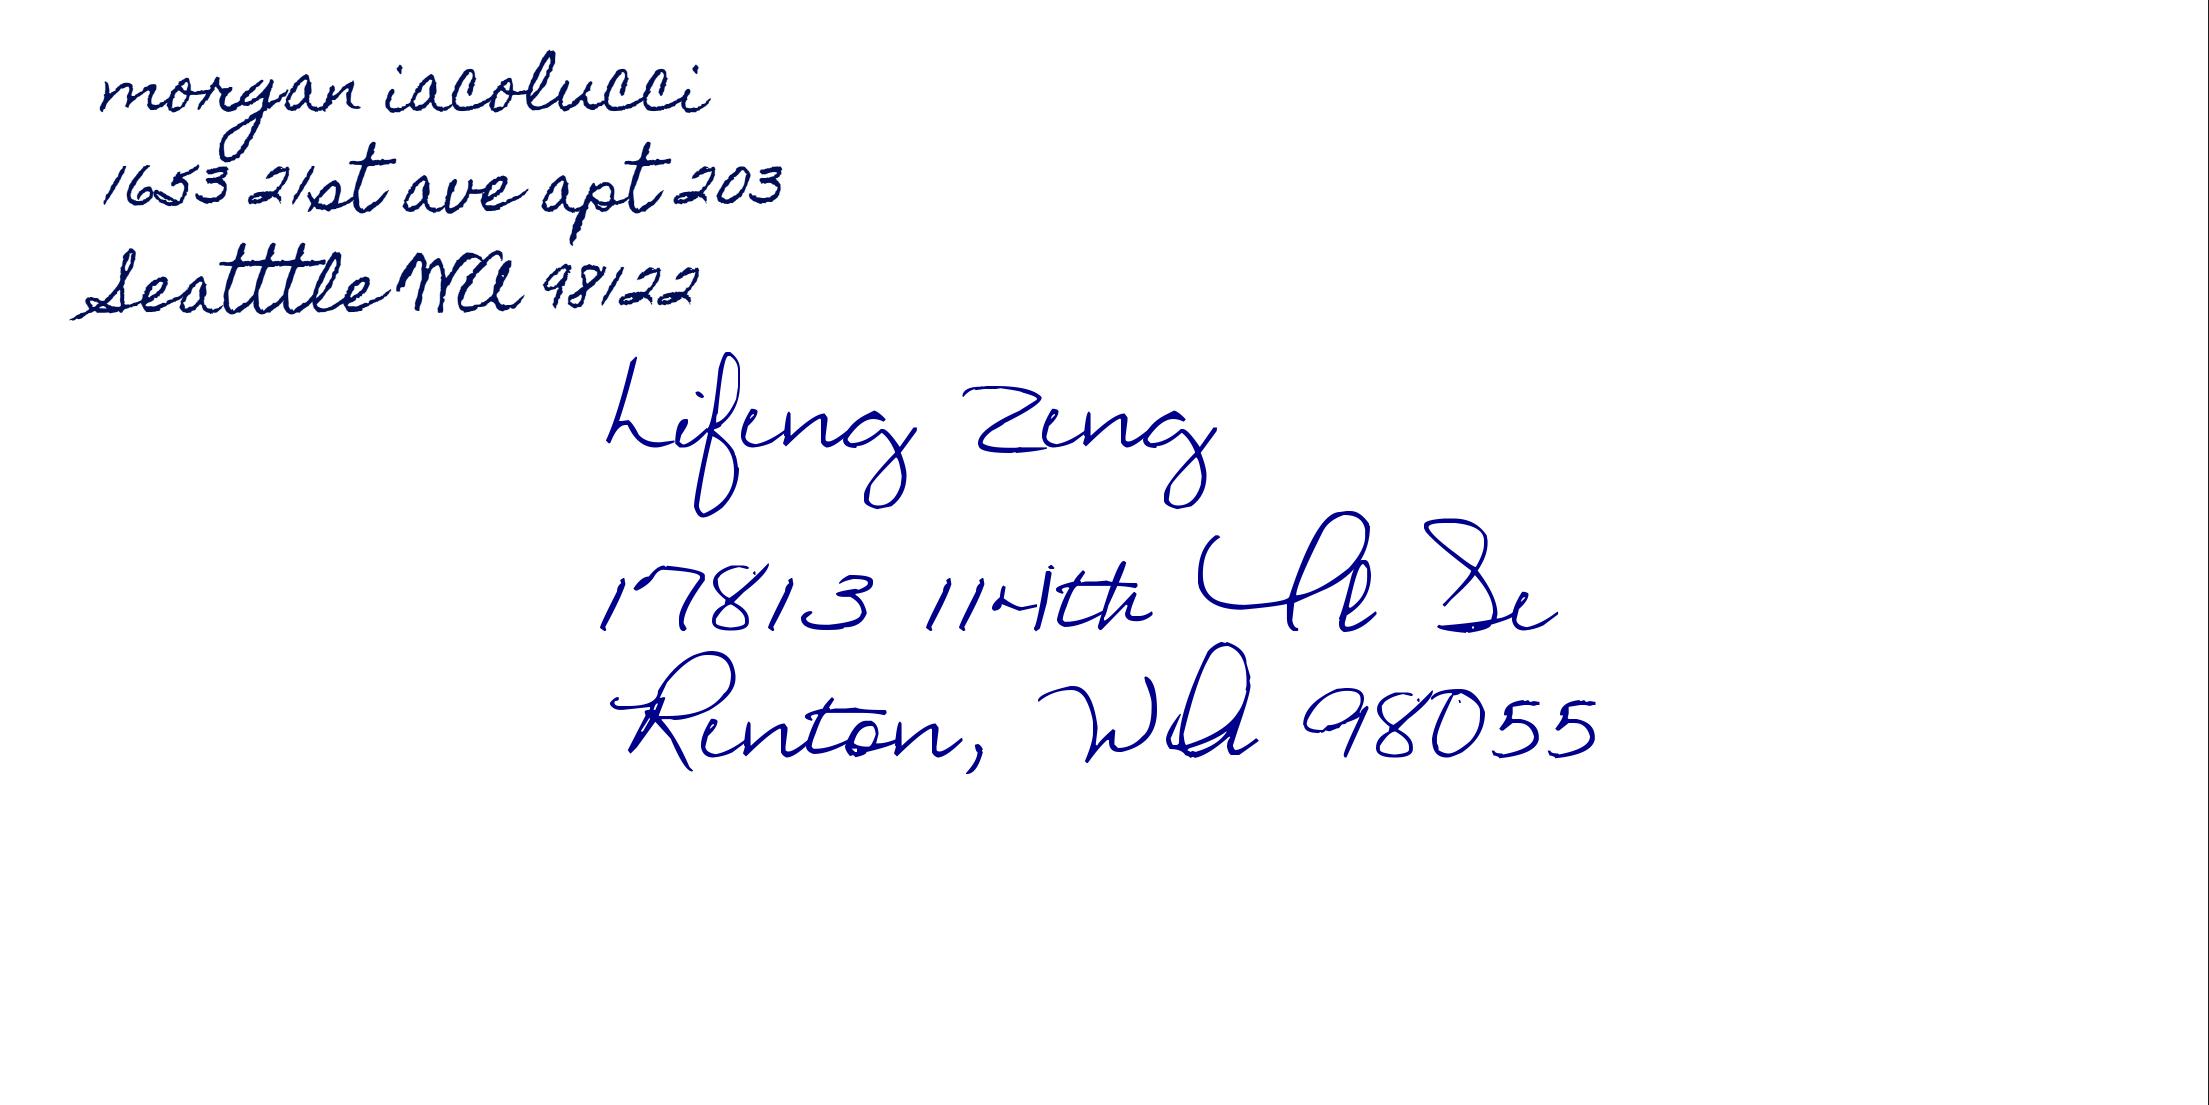 morgan iacolucci
1653 21st ave apt 203
Seatttle WA 98122
Lifeng Zeng
17813 114th Pl Se
Renton, WA 98055